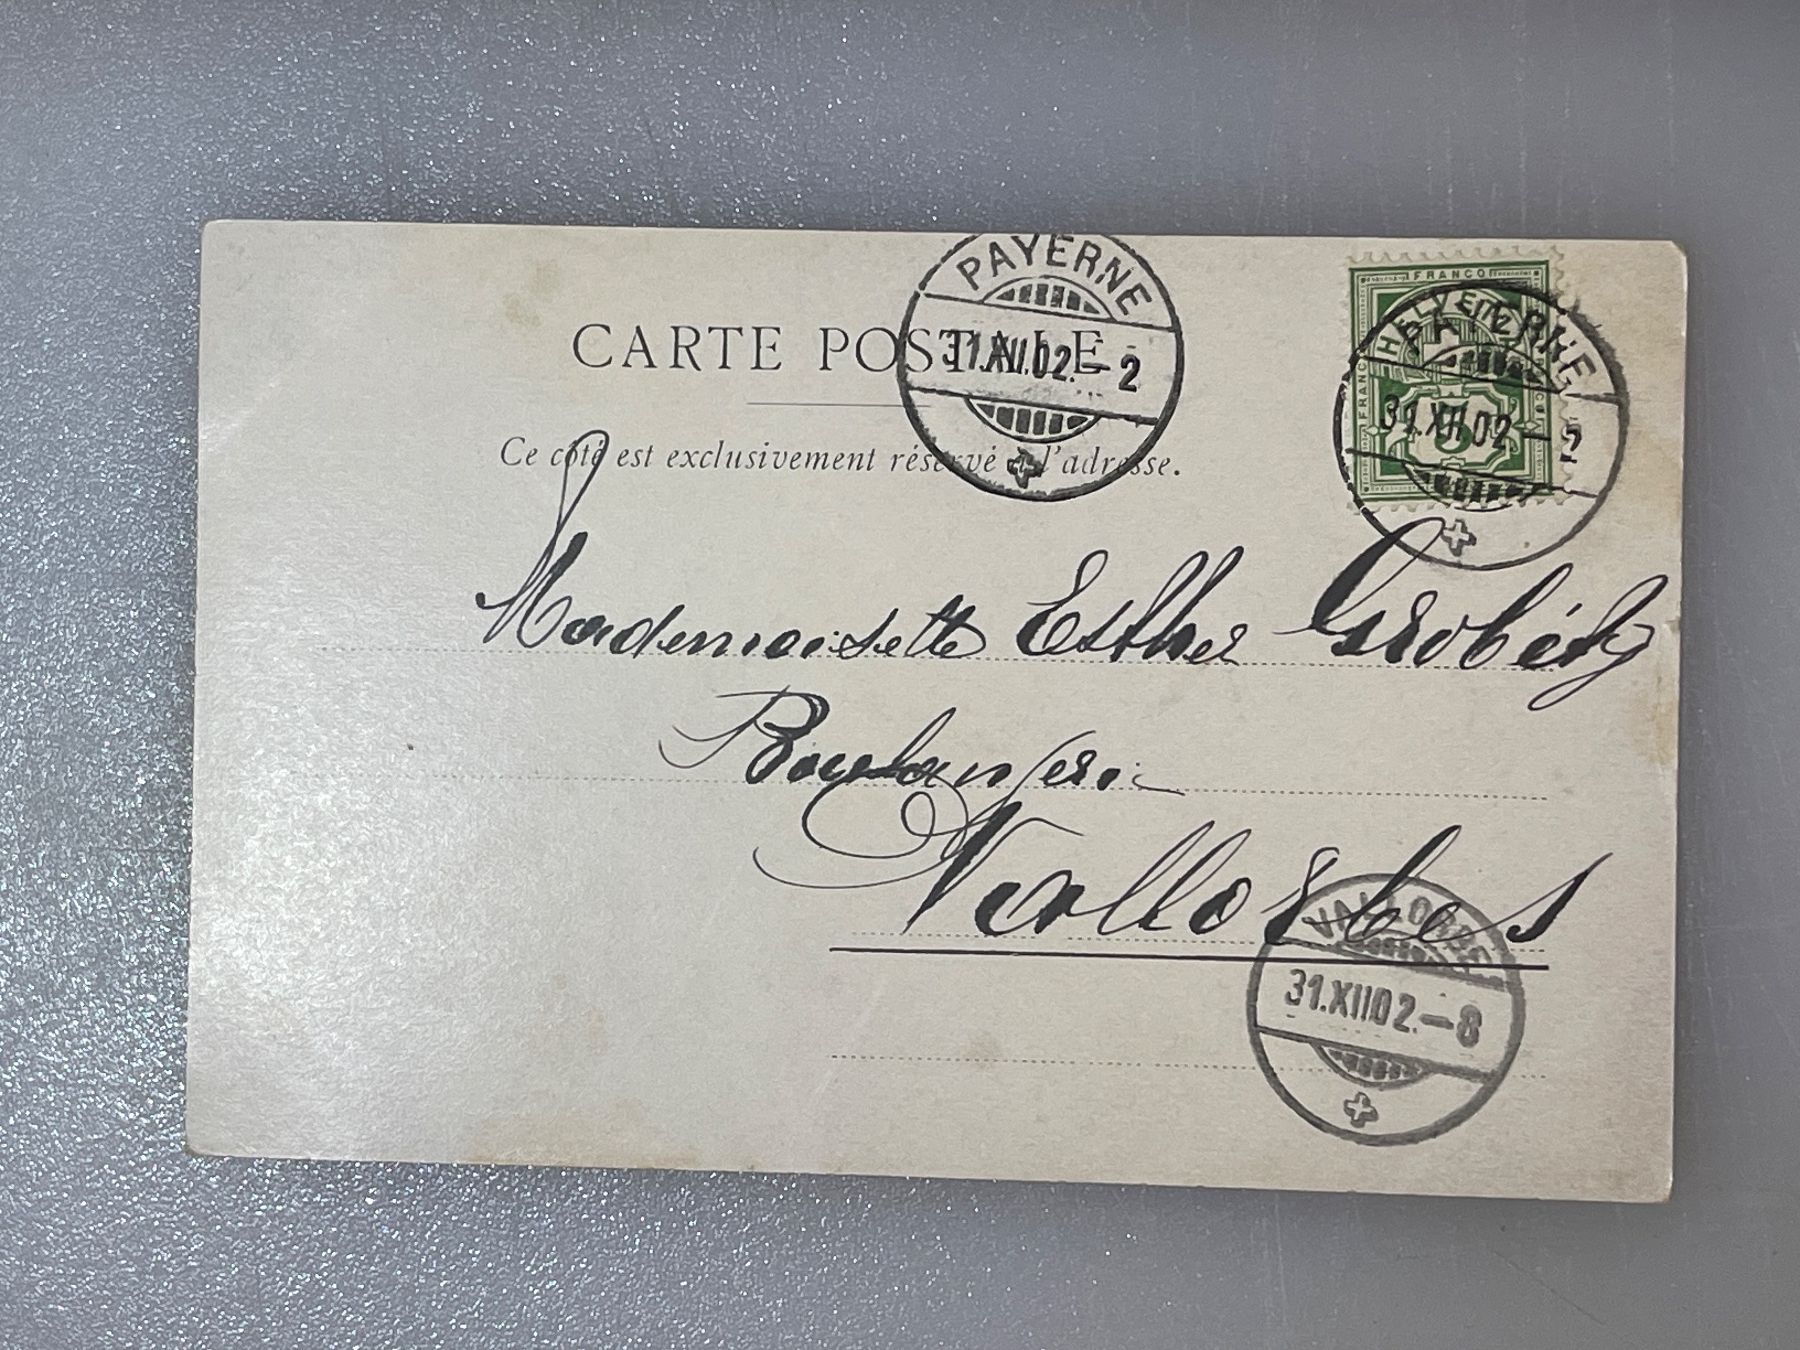 PAYERNE
31.XII.02.–2
FRANCO
HELVETIA
PAYERNE
31.XII.02–2
FRANCO
5
CARTE POSTALE
Ce côté est exclusivement réservé à l'adresse.
Mademoiselle Esther Grobéty
Boulangerie
Vallorbes
VALLORBE
31.XII.02.–8